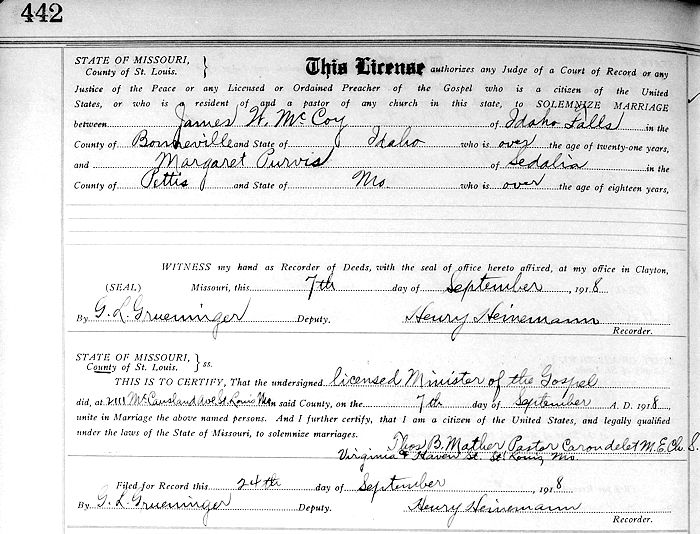 442
STATE OF MISSOURI, } This License authorizes any Judge of a Court of Record or any
County of St. Louis.
Justice of the Peace or any Licensed or Ordained Preacher of the Gospel who is a citizen of the United
States, or who is a resident of and a pastor of any church in this state, to SOLEMNIZE MARRIAGE
between James W. McCoy of Idaho Falls in the
County of Bonneville and State of Idaho who is over the age of twenty-one years,
and Margaret Purvis of Sedalia in the
County of Pettis and State of Mo. who is over the age of eighteen years,
WITNESS my hand as Recorder of Deeds, with the seal of office hereto affixed, at my office in Clayton,
(SEAL) Missouri, this 7th day of September, 1918
By G. L. Grueninger Deputy. Henry Heinemann
Recorder.
STATE OF MISSOURI, } ss.
County of St. Louis.
THIS IS TO CERTIFY, That the undersigned licensed Minister of the Gospel
did, at 2111 McCausland ave St. Louis Mo in said County, on the 7th day of September A. D. 1918,
unite in Marriage the above named persons. And I further certify, that I am a citizen of the United States, and legally qualified
under the laws of the State of Missouri, to solemnize marriages.
Thos B. Mather Pastor Carondelet M.E. Ch. S.
Virginia & Haven St. St. Louis, Mo.
Filed for Record this 24th day of September 1918
By G. L. Grueninger Deputy. Henry Heinemann
Recorder.